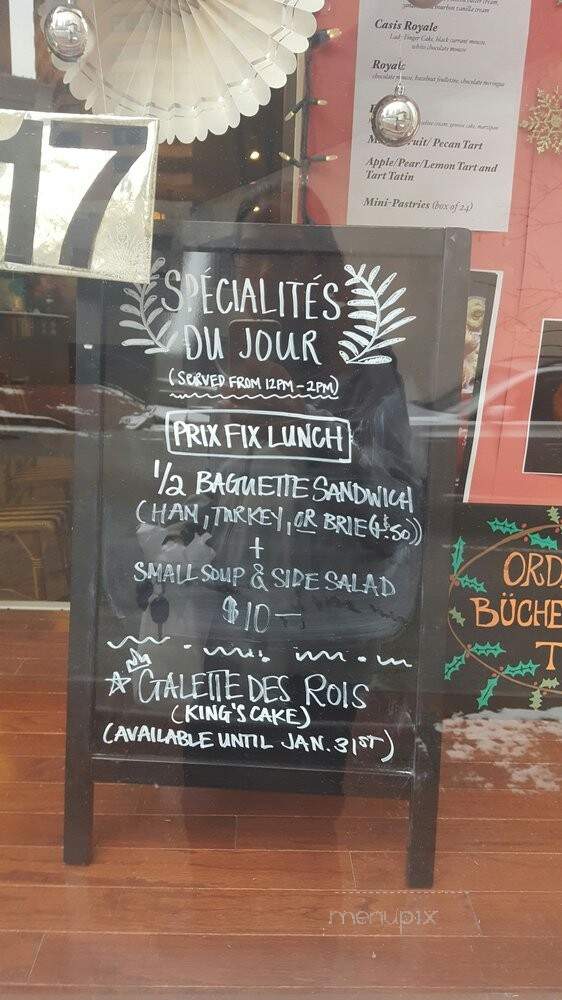 bourbon vanilla cream
Casis Royale
Lady Finger Cake, black currant mousse,
white chocolate mousse
Royale
chocolate mousse, hazelnut feuilletine, chocolate meringue
cream, genoise cake, marzipan
Fruit/Pecan Tart
Apple/Pear/Lemon Tart and
Tart Tatin
Mini-Pastries (box of 24)
17
SPÉCIALITÉS
DU JOUR
(SERVED FROM 12PM-2PM)
PRIX FIX LUNCH
1/2 BAGUETTE SANDWICH
(HAM, TURKEY, OR BRIE (+$.50))
+
SMALL SOUP & SIDE SALAD
$10—
GALETTE DES ROIS
(KING'S CAKE)
(AVAILABLE UNTIL JAN. 31ST)
ORD
BÛCHE
T
menupix